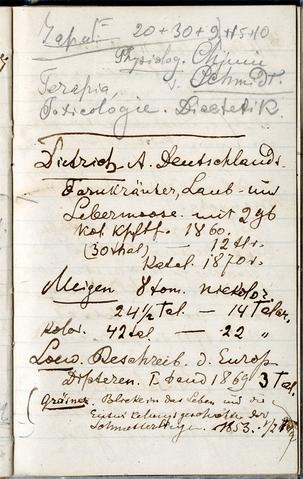 Zapał. 20+30+9+15+0
Physiolog. Chimie
Schmidt.
Terapia,
Toxicologie. Diaetetik.
Dietrich A. Deutschlands
Farnkräuter, Laub- und
Lebermoose. mit 296
Kol. Kpftf. 1860.
(30 thal) — 12 tlr.
Katal. 1870 r.
Meigen 8 tom. niekolor.
24 1/2 tal. — 14 Talar.
kolor. 42 tal — 22 "
Loew. Beschreib. d. Europ.
Dipteren. I Band 1869 3 Tal.
Gräfner. Blicke in das Leben und die
Entwickelungsgeschichte der
Schmetterlinge. 1853.